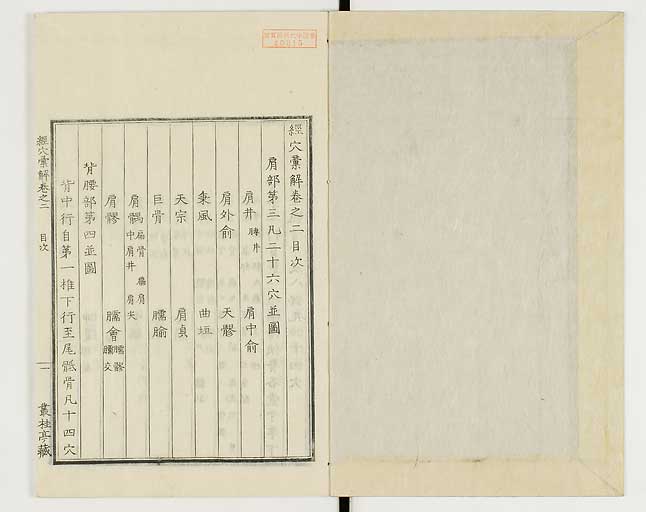 經穴彙解卷之二目次
肩部第三凡二十六穴並圖
肩井 膊井 肩中俞
肩外俞 天髎
秉風 曲垣
天宗 肩貞
巨骨 臑腧
肩髃 扁骨 中肩井 肩尖
肩髎 臑會 臑髎 臑交
背腰部第四並圖
背中行自第一椎下行至尾骶骨凡十四穴
經穴彙解卷之二 目次 一 叢桂亭藏